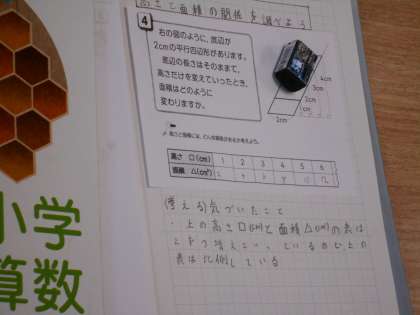 高さと面積の関係を調べよう
4
右の図のように、底辺が
2cmの平行四辺形があります。
底辺の長さはそのままで、
高さだけを変えていったとき、
面積はどのように
変わりますか。
4cm
3cm
2cm
1cm
2cm
高さと面積には、どんな関係があるか考えよう。
高さ □(cm) 1 2 3 4 5 6
面積 △(cm²) 2 4 6 8 10 12
(考える)気づいたこと
・上の高さ□(cm)と面積△(cm²)の表は
2ずつ増えて
いるので上の
表は比例している
小学
算数